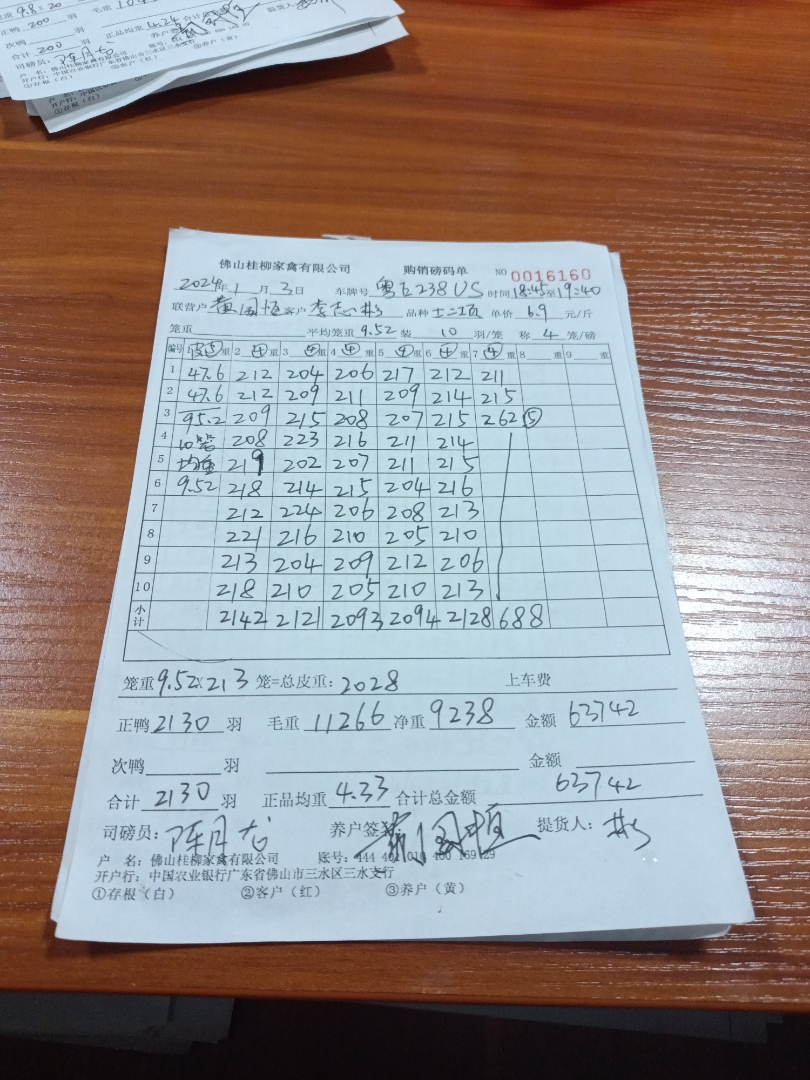 9.8 × 20
正鸭 200 羽 毛重
次鸭 羽 正品均重 4.24 合计
合计 200 羽
司磅员：陈月古
户 名：佛山桂柳家禽有限公司
开户行：中国农业银行广东省佛山市三水区三水支行
①存根（白） ③养户（黄）
佛山桂柳家禽有限公司 购销磅码单 NO 0016160
2024年1月3日 车牌号 粤E238US 时间18:45至19:40
联营户 黄国恒 客户 李志彬 品种 单价 6.9 元/斤
笼重 平均笼重 9.52 装 10 羽/笼 称 4 笼/磅
编号 1 皮⑤ 重 2 ④ 重 3 ④ 重 4 ④ 重 5 ④ 重 6 ④ 重 7 ④ 重 8 重 9 重
1 47.6 212 204 206 217 212 211
2 47.6 212 209 211 209 214 215
3 95.2 209 215 208 207 215 262⑤
4 10笼 208 223 216 211 214
5 均重 219 202 207 211 215
6 9.52 218 214 215 204 216
7 212 224 206 208 213
8 221 216 210 205 210
9 213 204 209 212 206
10 218 210 205 210 213
小计 2142 2121 2093 2094 2128 688
笼重 9.52×213 笼=总皮重：2028 上车费
正鸭 2130 羽 毛重 11266 净重 9238 金额 63742
次鸭 羽 金额
合计 2130 羽 正品均重 4.33 合计总金额 63742
司磅员：陈月古 养户签名： 黄国恒 提货人：彬
户 名：佛山桂柳家禽有限公司 账号：444
开户行：中国农业银行广东省佛山市三水区三水支行
①存根（白） ②客户（红） ③养户（黄）